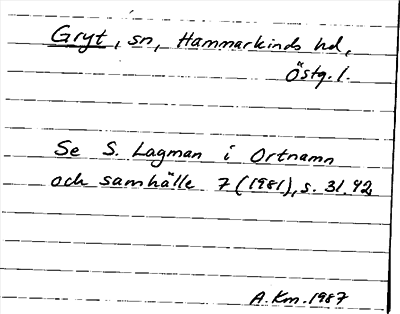 Gryt, sn, Hammarkinds hd,
Östg. l.
Se S. Lagman i Ortnamn
och samhälle 7 (1981), s. 31, 42
A. Km. 1987